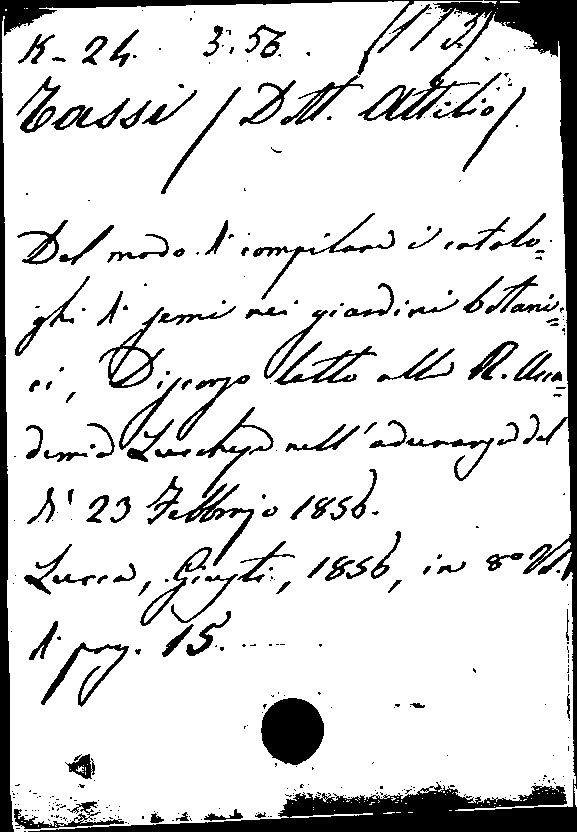 K-24. 3.56. (113)
Tassi (Dott. Attilio)
Del modo di compilare i catalo=
ghi di semi nei giardini botani=
ci, Discorso letto alla R. Acca=
demia Lucchese nell'adunanza del
di' 23 Febbrajo 1856.
Lucca, Giusti, 1856, in 8º Vol.
di pag. 15.